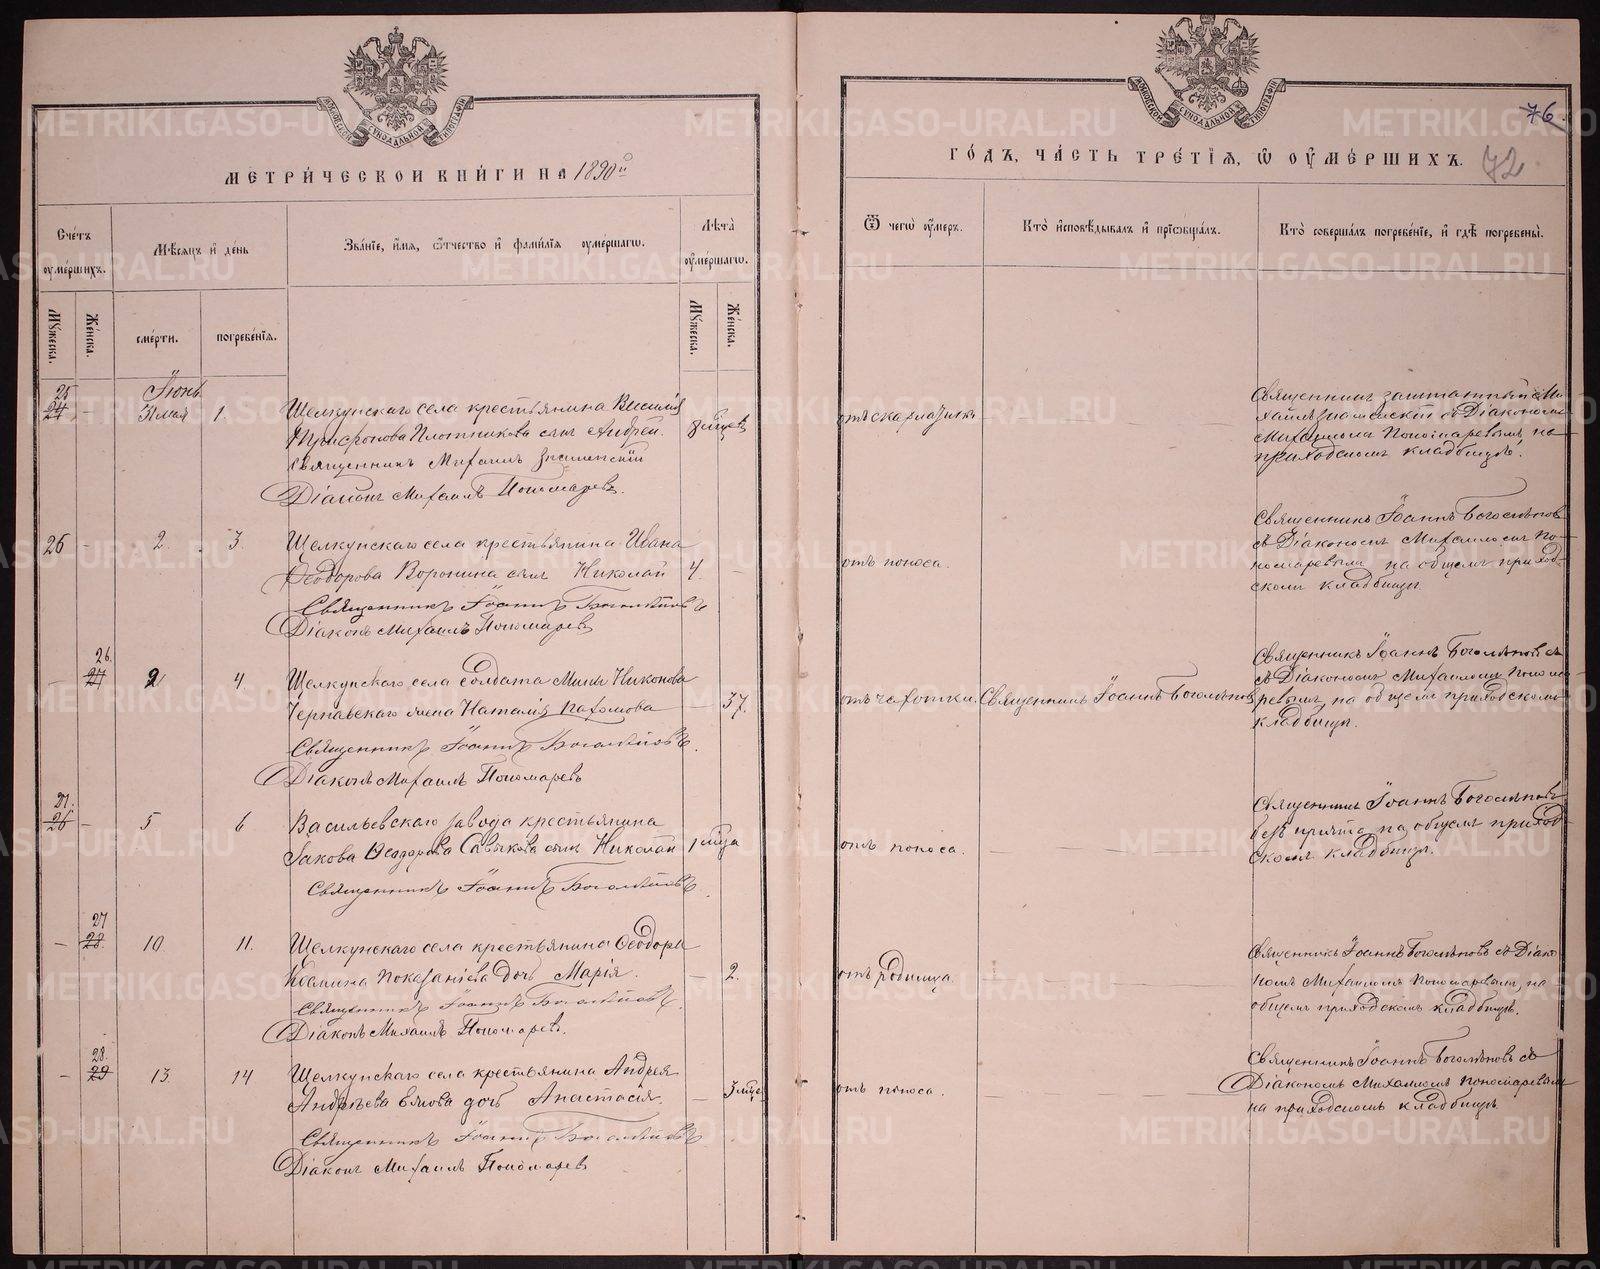 МЕТРИ́ЧЕСКОЙ КНИ́ГИ НА 1890й
ГО́ДЪ, ЧА́СТЬ ТРЕ́ТІЯ, Ѿ ОУМЕ́РШИХЪ.
76
72.
Сче́тъ оумершихъ.
Мѣсяцъ и де́нь
Зва́ніе, и́мя, ѻтчество и фами́лія оумершагѡ.
Лѣта̀ оумершагѡ.
Ѿ чегѡ̀ оумеръ.
Кто̀ исповѣдывалъ и пріѡбща́лъ.
Кто̀ соверша́лъ погребе́ніе, и гдѣ погребены̀.
Мꙋжеска.
Же́нска.
сме́рти.
погребе́нія.
Мꙋжеска.
Же́нска.
Іюнь
25
24 - 31 мая 1.
Щелкунскаго села крестьянина Василія
Трифонова Плотникова сынъ Андрей.
Священникъ Михаилъ Знаменскій
Діаконъ Михаилъ Пономаревъ.
отъ скарлатины
Священникъ заштатный Ми-
хаилъ Знаменскій съ Діакономъ
Михаиломъ Пономаревымъ на
приходскомъ кладбищѣ.
26 - 2. 3.
Щелкунскаго села крестьянина Ивана
Ѳеодорова Воронина сынъ Николай 4.
Священникъ Іоаннъ Боголѣповъ
Діаконъ Михаилъ Пономаревъ
отъ поноса.
Священникъ Іоаннъ Боголѣповъ
съ Діакономъ Михаиломъ По-
номаревымъ на общемъ приход-
скомъ кладбищѣ.
26.
- 27 2 4
Щелкунскаго села солдата Никонова
Чернавскаго жена Наталія Пахомова 37.
Священникъ Іоаннъ Боголѣповъ.
Діаконъ Михаилъ Пономаревъ
отъ чахотки. Священникъ Іоаннъ Боголѣповъ
Священникъ Іоаннъ Боголѣповъ
съ Діакономъ Михаиломъ Понома-
ревымъ на общемъ приходскомъ
кладбищѣ.
27.
26 - 5 6
Васильевскаго завода крестьянина
Іакова Ѳеодорова Савчкова сынъ Николай 1 мѣсца
Священникъ Іоаннъ Боголѣповъ.
отъ поноса.
Священникъ Іоаннъ Боголѣповъ
безъ причта на общемъ приход-
скомъ кладбищѣ.
27
- 28. 10. 11.
Щелкунскаго села крестьянина Ѳеодора
Козмина Показаніева дочь Марія. - 2.
Священникъ Іоаннъ Боголѣповъ.
Діаконъ Михаилъ Пономаревъ.
отъ родимца.
Священникъ Іоаннъ Боголѣповъ съ Діако-
номъ Михаиломъ Пономаревымъ, на
общемъ приходскомъ кладбищѣ.
28.
- 29 13 14
Щелкунскаго села крестьянина Андрея
Андреева дочь Анастасія. - 3 мѣс
Священникъ Іоаннъ Боголѣповъ
Діаконъ Михаилъ Пономаревъ
отъ поноса.
Священникъ Іоаннъ Боголѣповъ съ
Діакономъ Михаиломъ Пономаревымъ
на приходскомъ кладбищѣ.